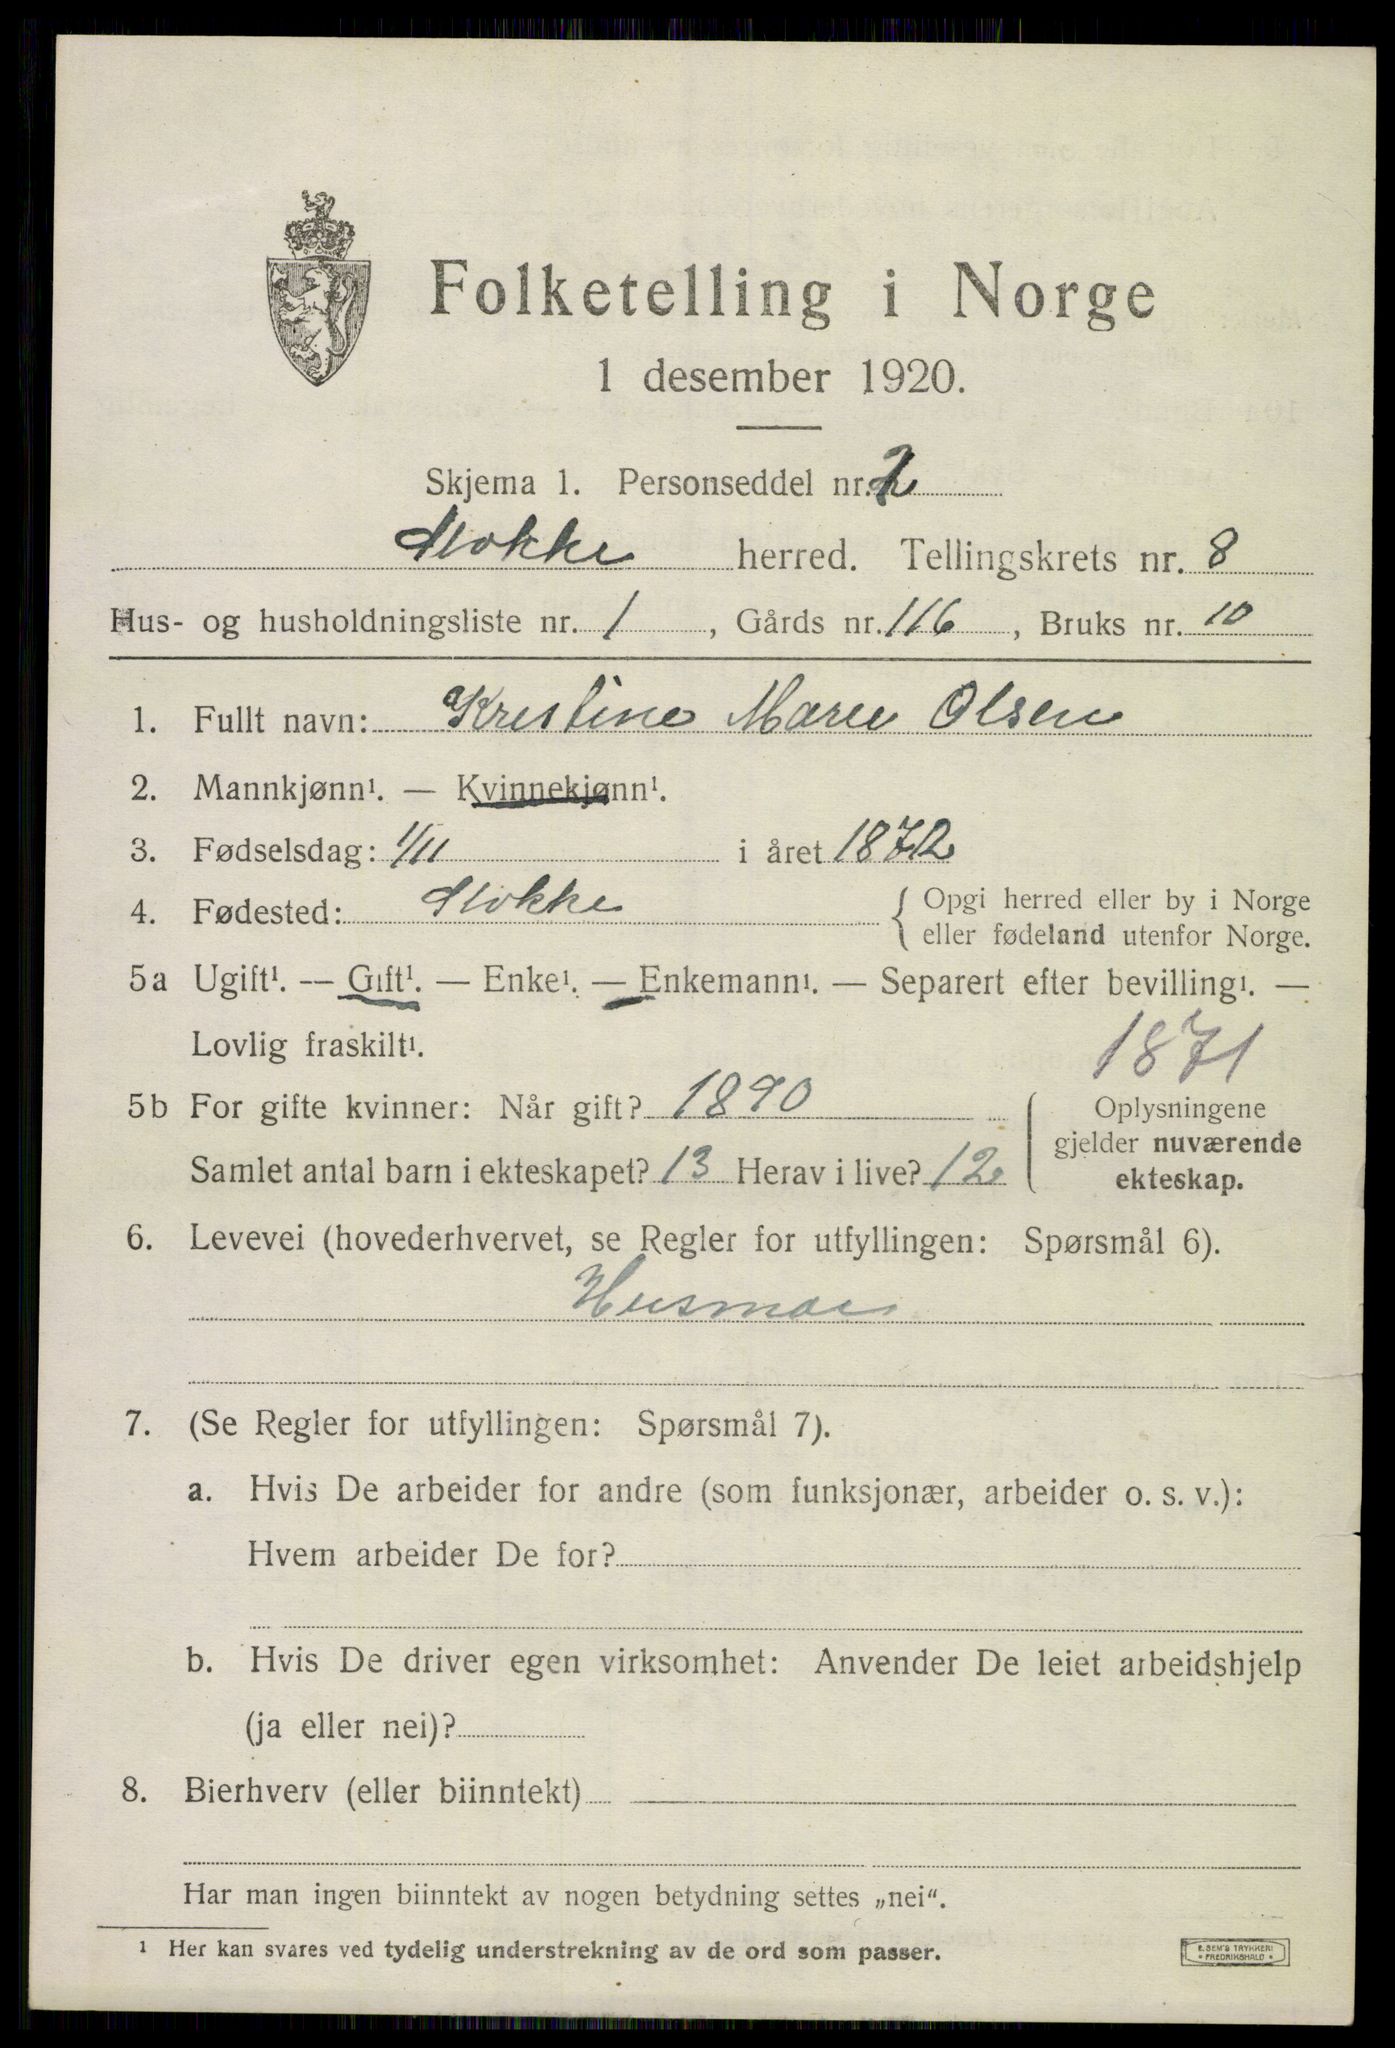 Folketelling i Norge
1 desember 1920.
Skjema 1. Personseddel nr. 2
Stokke herred. Tellingskrets nr. 8
Hus- og husholdningsliste nr. 1, Gårds nr. 116, Bruks nr. 10
1. Fullt navn: Kristine Marie Olsen
2. Mannkjønn¹. — Kvinnekjønn¹.
3. Fødselsdag: 1/11 i året 1872
4. Fødested: Stokke { Opgi herred eller by i Norge
eller fødeland utenfor Norge.
5a Ugift¹. — Gift¹. — Enke¹. — Enkemann¹. — Separert efter bevilling¹. —
Lovlig fraskilt¹.
1871
5b For gifte kvinner: Når gift? 1890
Samlet antal barn i ekteskapet? 13 Herav i live? 12
{ Oplysningene
gjelder nuværende
ekteskap.
6. Levevei (hovederhvervet, se Regler for utfyllingen: Spørsmål 6).
Husmor
7. (Se Regler for utfyllingen: Spørsmål 7).
a. Hvis De arbeider for andre (som funksjonær, arbeider o. s. v.):
Hvem arbeider De for?
b. Hvis De driver egen virksomhet: Anvender De leiet arbeidshjelp
(ja eller nei)?
8. Bierhverv (eller biinntekt)
Har man ingen biinntekt av nogen betydning settes „nei“.
¹ Her kan svares ved tydelig understrekning av de ord som passer.
E. SEM'S TRYKKERI
• FREDRIKSHALD •